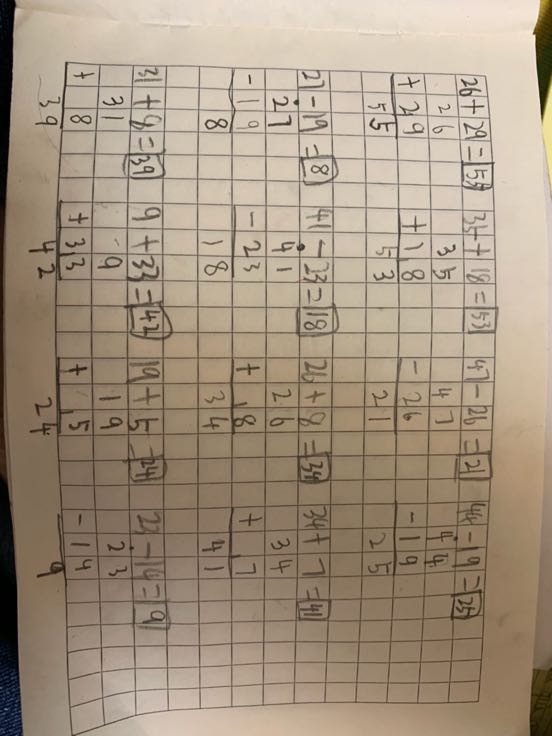 26 + 29 = 55 35 + 18 = 53 47 - 26 = 21 44 - 19 = 25
26 35 47 44
+ 29 + 18 - 26 - 19
55 53 21 25
27 - 19 = 8 41 - 23 = 18 26 + 8 = 34 34 + 7 = 41
27 41 26 34
- 19 - 23 + 8 + 7
8 18 34 41
31 + 8 = 39 9 + 33 = 42 19 + 5 = 24 23 - 14 = 9
31 9 19 23
+ 8 + 33 + 5 - 14
39 42 24 9